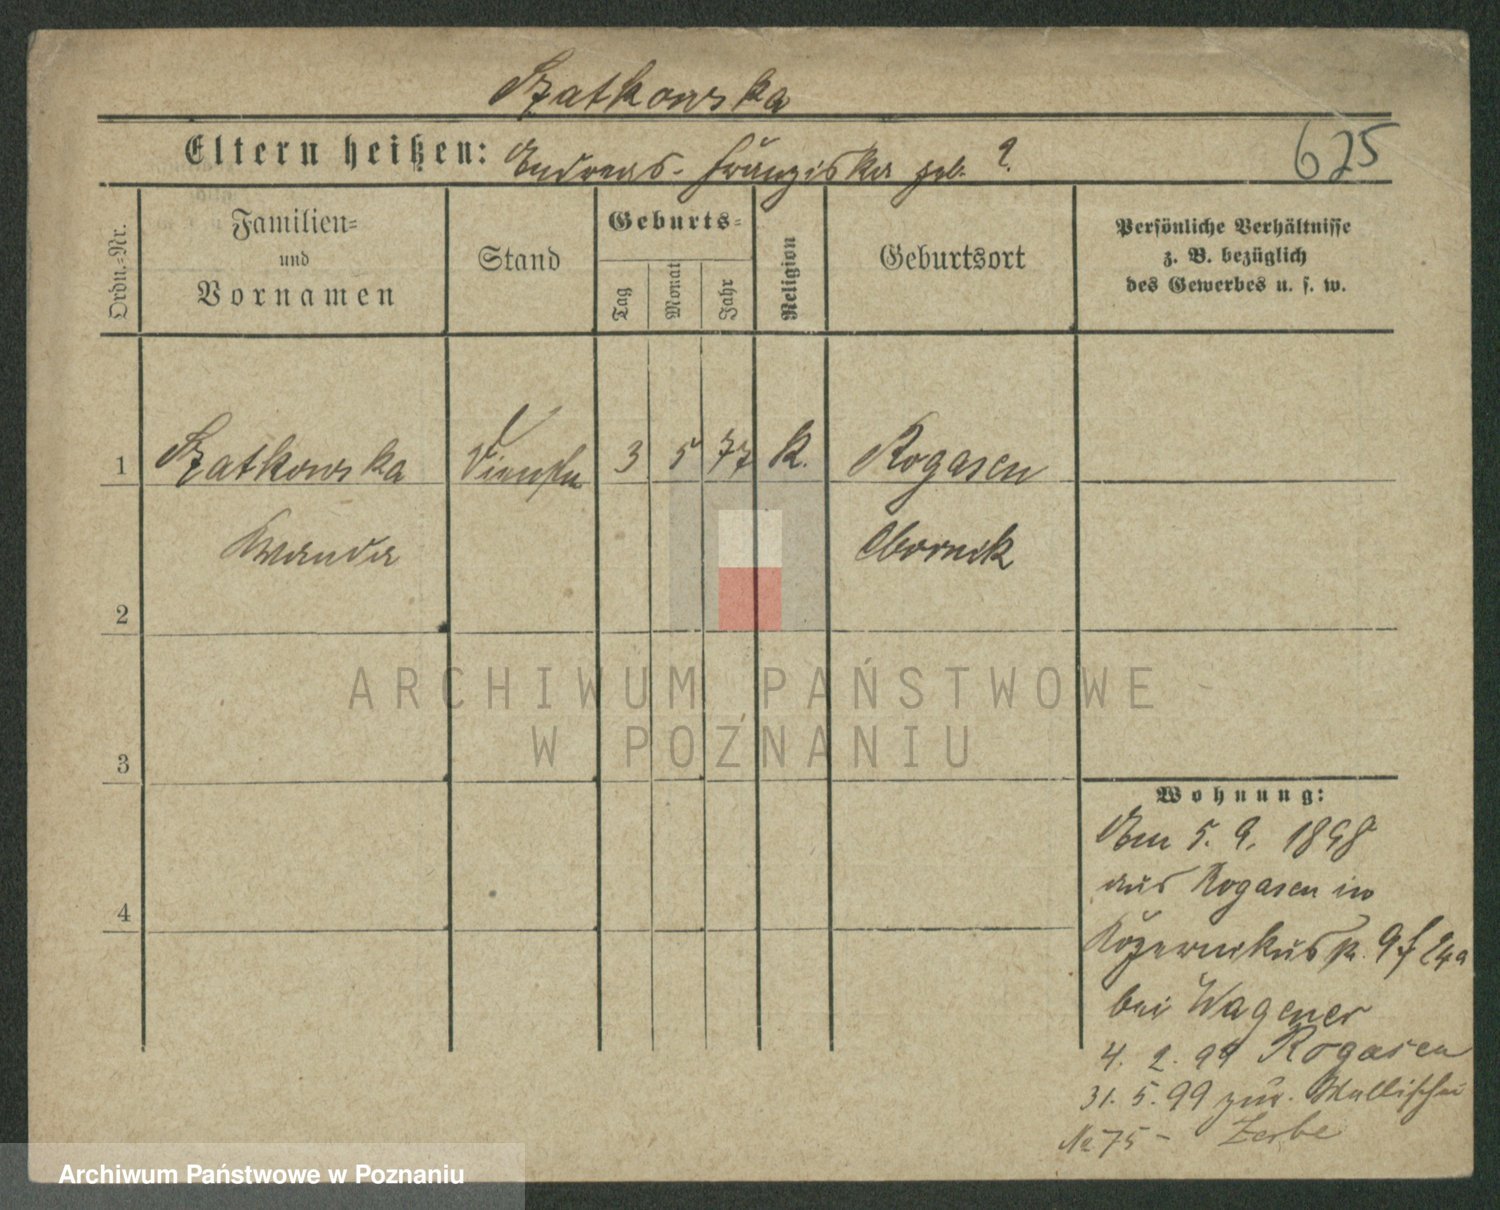 Szatkowska
Eltern heißen: Andreas - Franziska geb. ?
675
Ordn.-Nr.
Familien-
und
Vornamen
Stand
Geburts-
Tag
Monat
Jahr
Religion
Geburtsort
Persönliche Verhältnisse
z. B. bezüglich
des Gewerbes u. s. w.
1 Szatkowska 3 5 77 K. Rogasen
Wanda Obornik
2
3
4
Wohnung:
Am 5. 9. 1898
aus Rogasen in
bei Wagener
4. 2. 99 Rogasen
31. 5. 99 zur. Wallischei
No 75 - Zerbe
ARCHIWUM PAŃSTWOWE
W POZNANIU
Archiwum Państwowe w Poznaniu